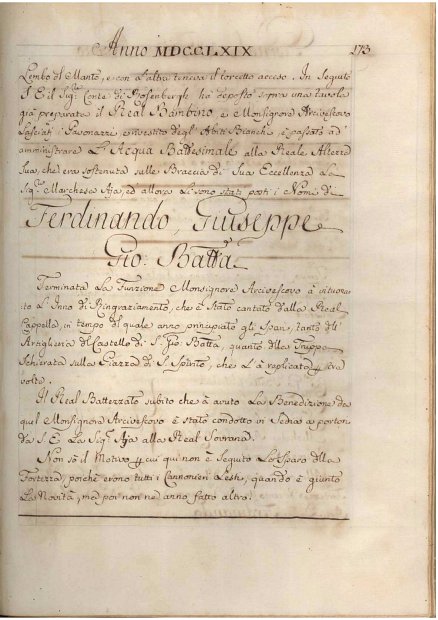 Anno MDCCLXIX 173
Lembo dl Manto, e con l'altra teneva il torcetto acceso. In Seguito
S. E. il Sigr. Conte di Rosenbergh ha deposto sopra una tavola
già preparata il Real Bambino, e Monsignore Arcivescovo
Lasciati i Pavonazzi, e investito degl'Abiti Bianchi è passato ad
amministrare L'Acqua Battesimale alla Reale Altezza
Sua, che era sostenuta sulle Braccia di Sua Eccellenza La
Sigra. Marchesa Aja, ed allora Li sono stati posti i Nomi di
Ferdinando, Giuseppe
Gio: Batta
Terminata La Funzione Monsignore Arcivescovo à
to L'Inno di Ringraziamento, che è Stato cantato dalla Real
Cappella, in tempo dl quale anno principiato gli Spari, tanto dll'
Artiglieria dl Castello di S. Gio: Batta, quanto dlla Truppa
Schierata sulla Piazza di S. Spirito, che L'à replicata tre
volte.
Il Real Battezzato subito che à avuto La Benedizione da
quel Monsignore Arcivescovo è stato condotto in Sedia a porton
da S. E. La Sigra. Aja alla Real Sovrana.
Non sò il Motivo p cui qui non è Seguito Lo Sparo dlla
Fortezza, poichè erono tutti i Cannonieri Lesti, quando è giunto
La Novità, ma poi non ne anno fatto altro.